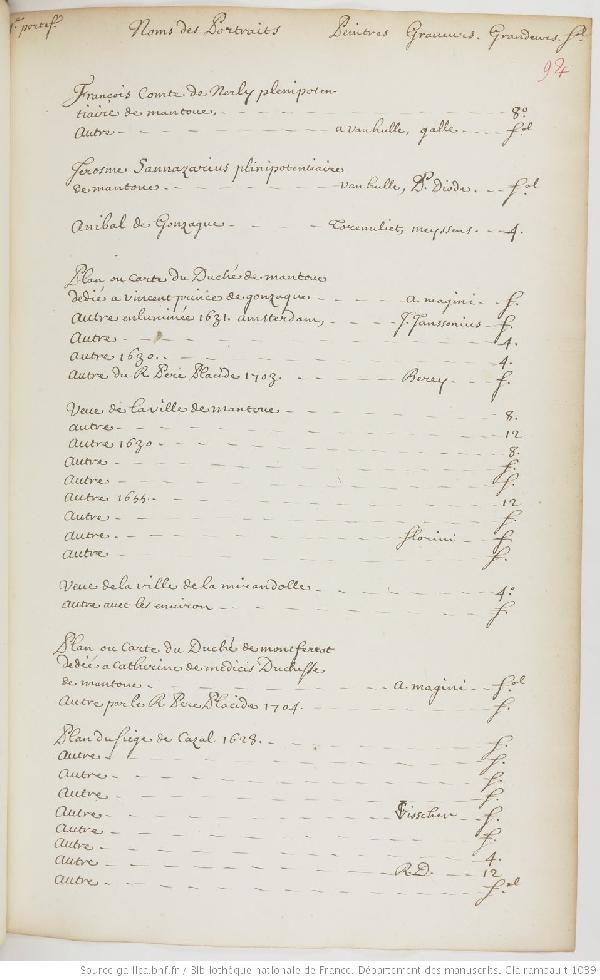 1.r portef. Noms des Portraits Peintres Graveurs. Grandeurs. fol
94
François Comte de Nerly plenipoten-
tiaire de mantoue. 8.o
Autre a vanhulle, galle fol
Jerosme Sannazarius plinipotentiaire
de mantoue vanhulle, P. Diode. fol
Anibal de Gonzague meyssens. 4.
Plan ou Carte du Duché de mantoue
dedié a vincent prince de gonzague. a. magini f.
Autre enluminée 1631. amsterdam, J. Janssonius f.
Autre 4.
autre 1630. 4.
Autre du R Pere Placide 1703. Berey f.
Veue de la ville de mantoue 8.
autre 12
Autre 1630 8.
Autre f.
Autre f.
Autre 1655. 12
Autre f.
Autre. florini f.
Autre f.
Veue de la ville de la mirandolle 4.o
autre avec les environ f.
Plan ou Carte du Duché de montferrat
dedié a Catherine de medicis Duchesse
de mantoue. a. magini fol
Autre par le R Pere Placide 1704. f.
Plan du siege de Cazal 1628. f.
Autre f.
Autre f.
Autre f.
Autre Visscher f.
Autre f.
Autre. 4.
Autre R.D. 12
Autre fol
Source gallica.bnf.fr / Bibliothèque nationale de France. Département des manuscrits. Clairambault 1039